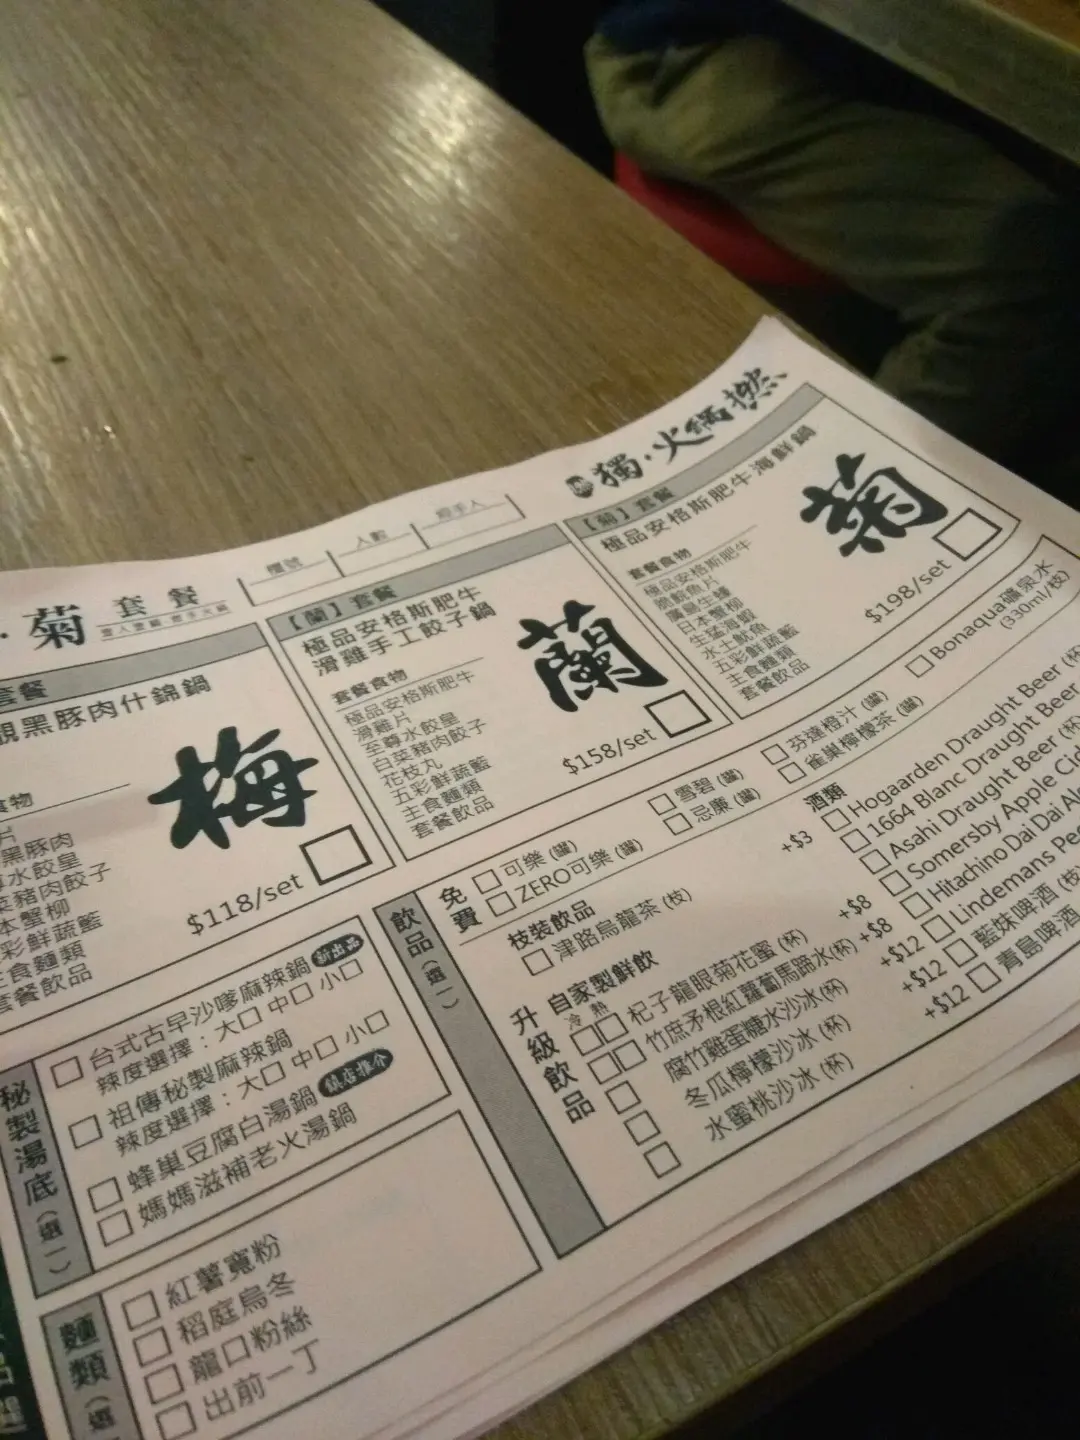 獨·火鍋撚
菊 套餐
檯號
人數
經手人
套餐
靚黑豚肉什錦鍋
食物
片
黑豚肉
水餃皇
菜豬肉餃子
本蟹柳
彩鮮蔬籃
主食麵類
套餐飲品
梅
$118/set
【蘭】套餐
極品安格斯肥牛
滑雞手工餃子鍋
套餐食物
極品安格斯肥牛
滑雞片
至尊水餃皇
白菜豬肉餃子
花枝丸
五彩鮮蔬籃
主食麵類
套餐飲品
蘭
$158/set
【菊】套餐
極品安格斯肥牛海鮮鍋
套餐食物
極品安格斯肥牛
脆鯇魚片
廣島生蠔
日本蟹柳
生猛海蝦
水土魷魚
五彩鮮蔬籃
主食麵類
套餐飲品
菊
$198/set
秘製湯底(選一)
台式古早沙嗲麻辣鍋 新出品
辣度選擇:大 中 小
祖傳秘製麻辣鍋
辣度選擇:大 中 小
蜂巢豆腐白湯鍋 鎮店推介
媽媽滋補老火湯鍋
麵類(選
紅薯寬粉
稻庭烏冬
龍口粉絲
出前一丁
飲品(選一)
免費
可樂(罐)
ZERO可樂(罐)
雪碧(罐)
忌廉(罐)
芬達橙汁(罐)
雀巢檸檬茶(罐)
Bonaqua礦泉水
(330ml/枝)
升級飲品
枝裝飲品
津路烏龍茶(枝) +$3
自家製鮮飲
冷 熱
杞子龍眼菊花蜜(杯) +$8
竹庶矛根紅蘿蔔馬蹄水(杯) +$8
腐竹雞蛋糖水沙冰(杯) +$12
冬瓜檸檬沙冰(杯) +$12
水蜜桃沙冰(杯) +$12
酒類
Hogaarden Draught Beer (杯
1664 Blanc Draught Beer
Asahi Draught Beer (杯
Somersby Apple Cid
Hitachino Dai Dai Al
Lindemans Pe
藍妹啤酒(枝
青島啤酒